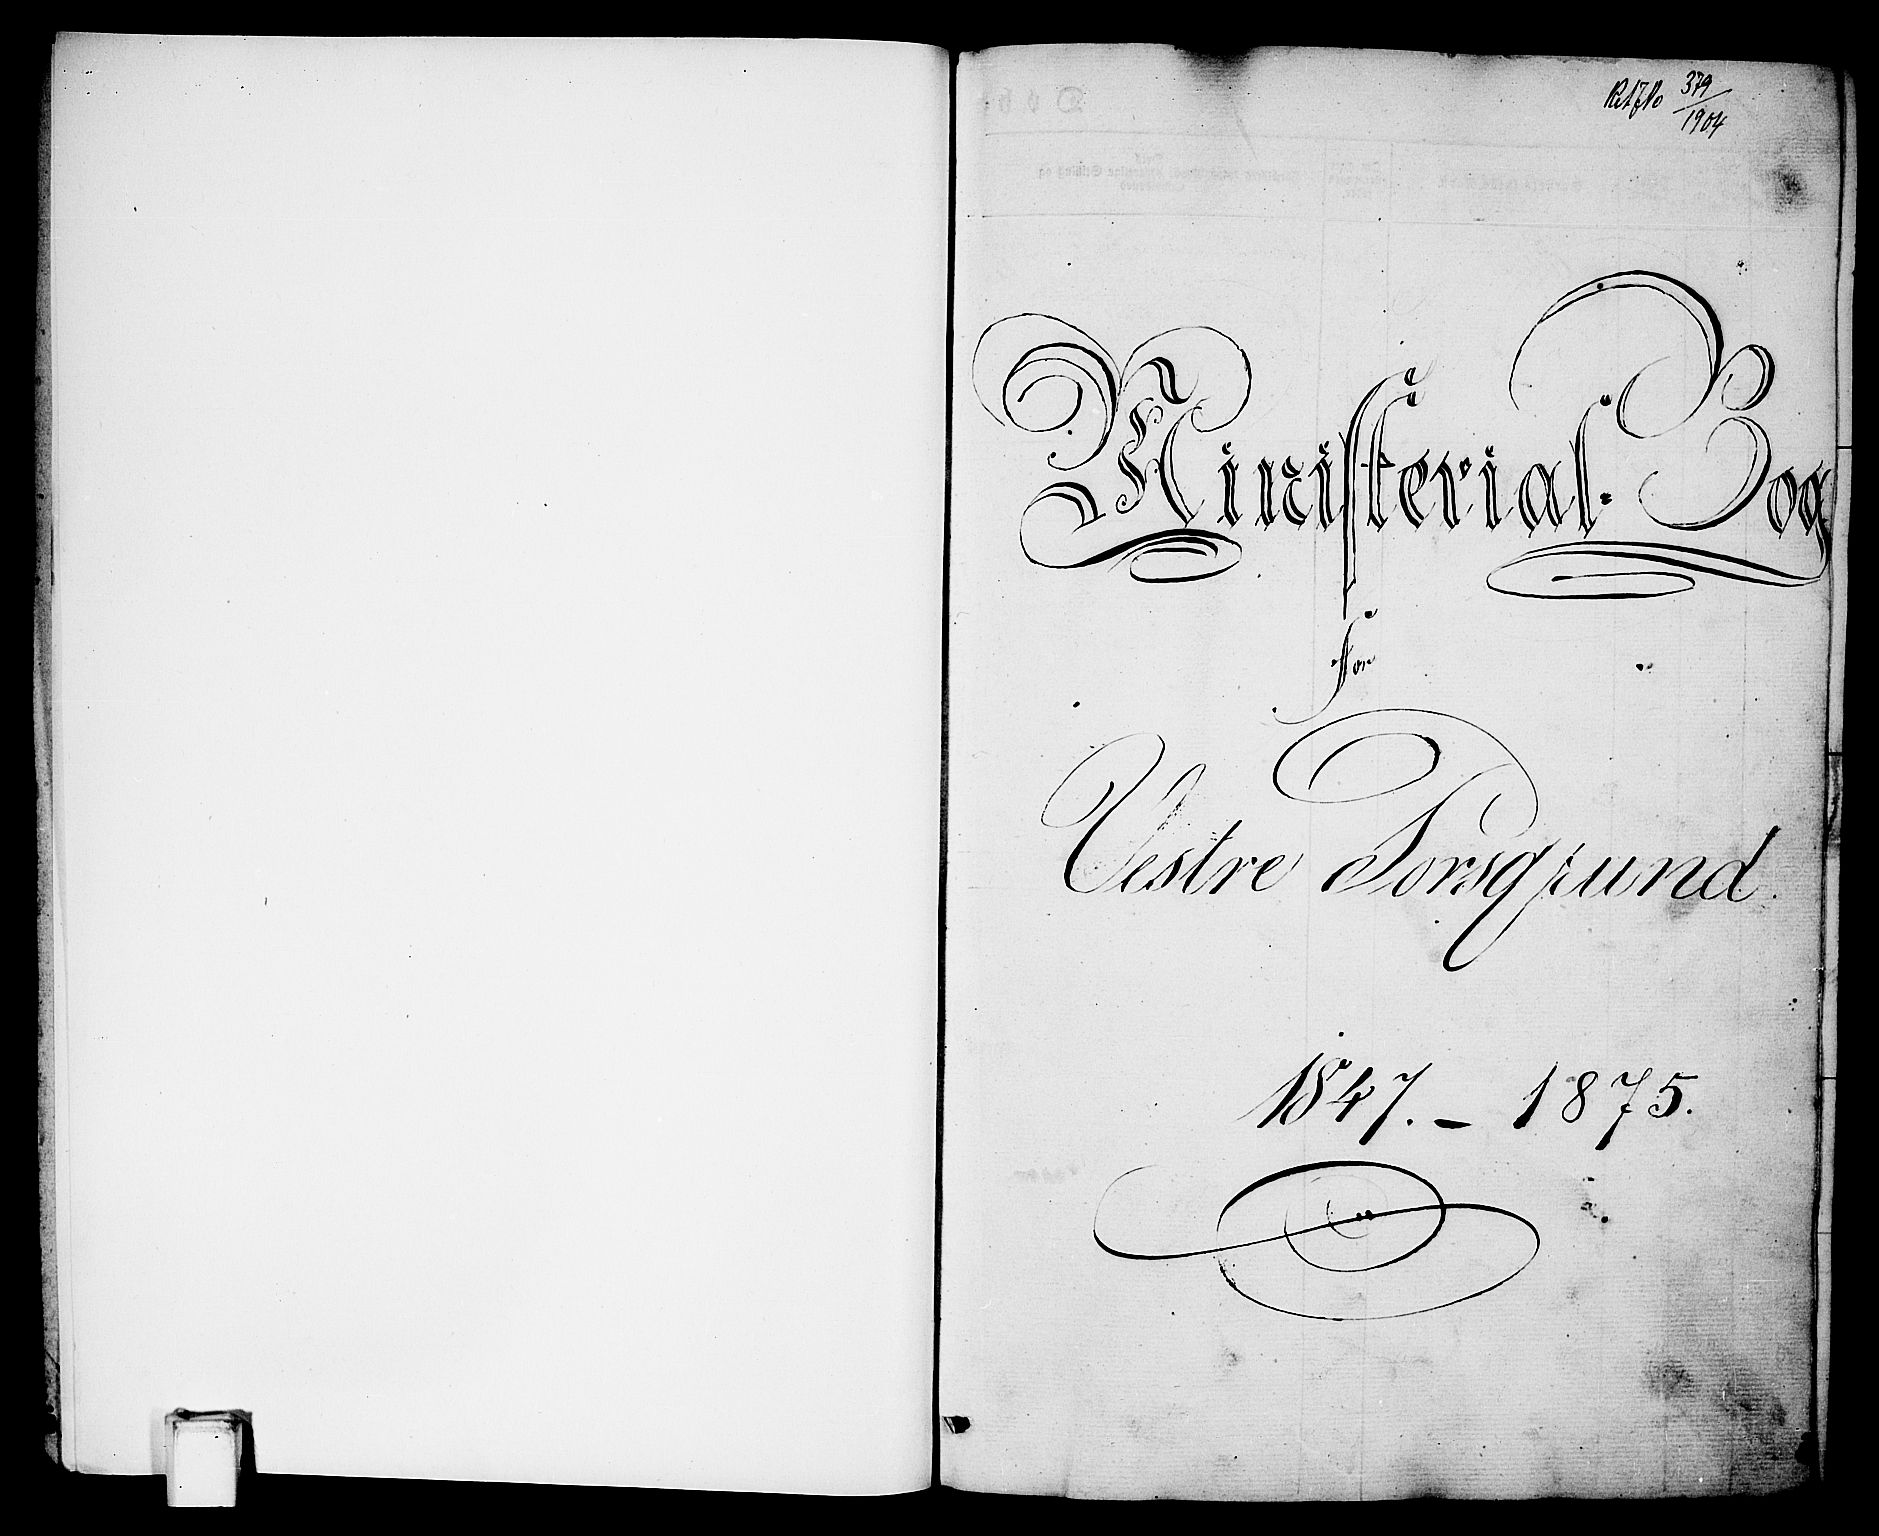 379
1904
Ministerial-Bog
for
Vestre Porsgrund
1847. - 1875.